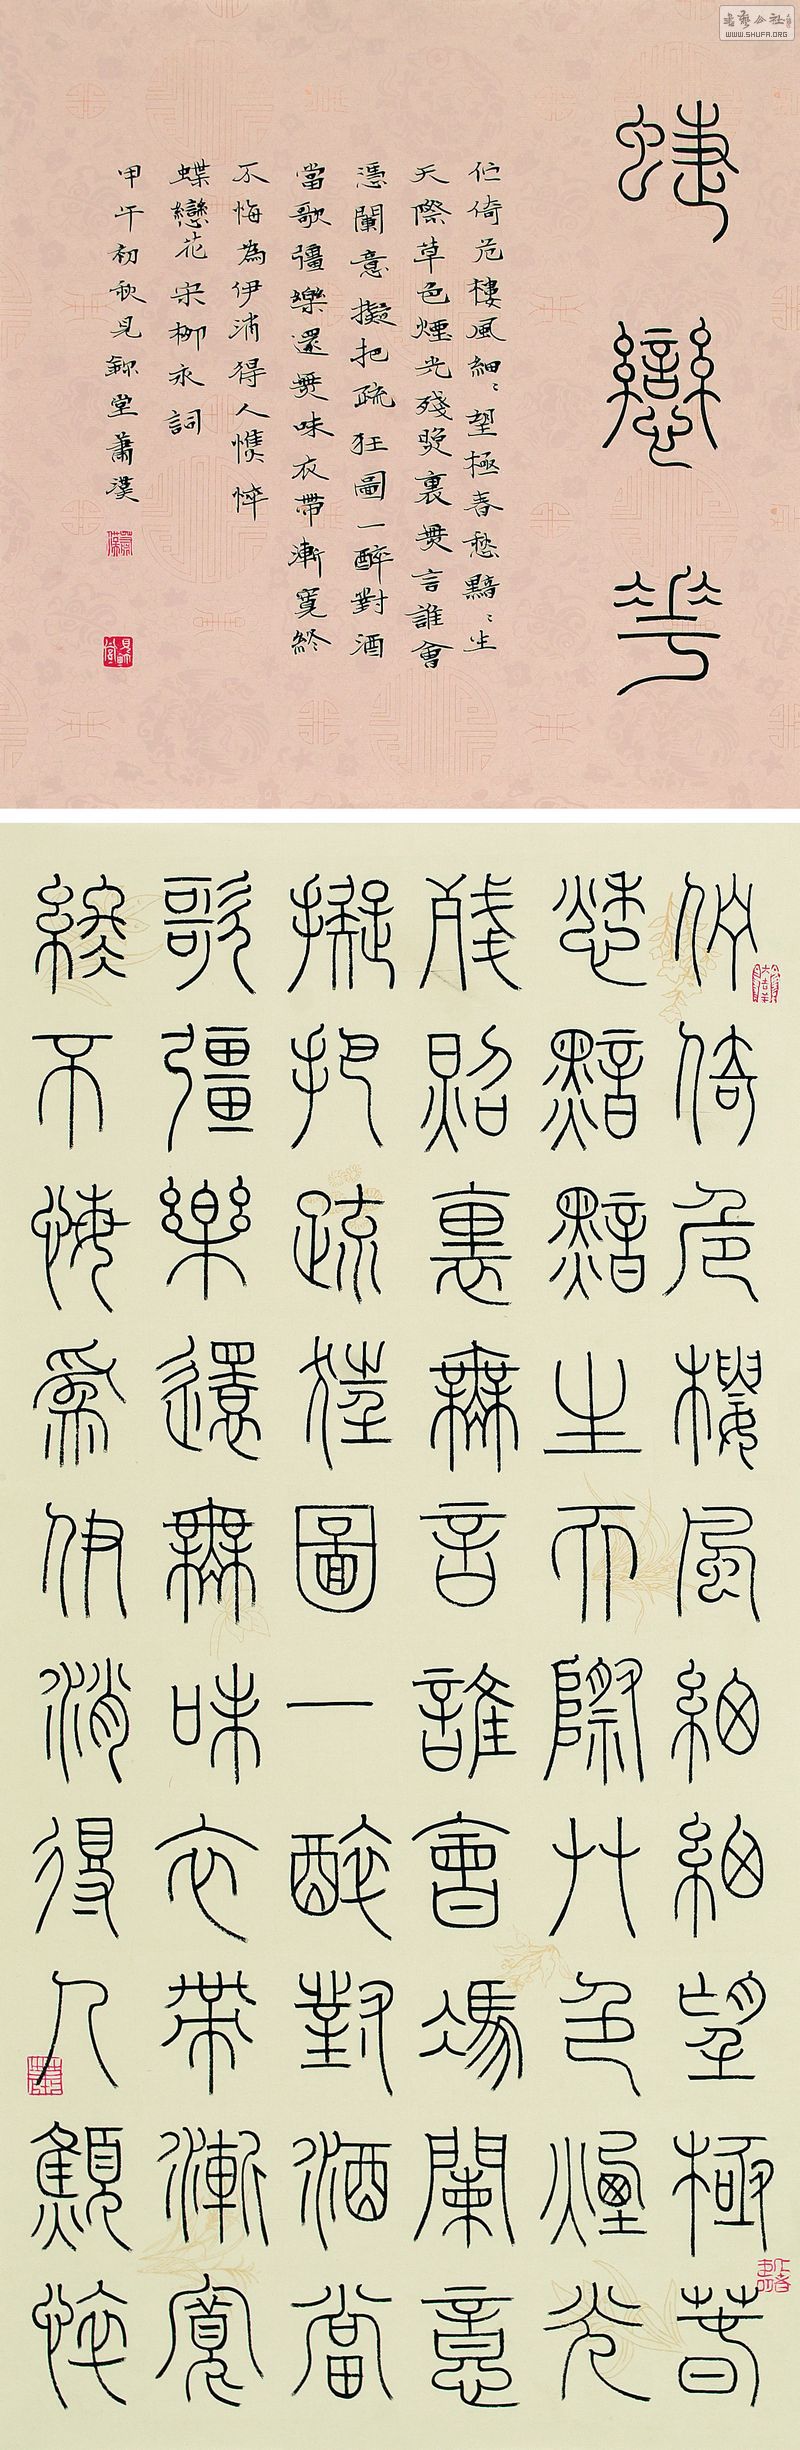 书艺公社
WWW.SHUFA.ORG
蜨戀華
伫倚危樓風細〻望極春愁黯〻生
天際草色煙光殘照裏無言誰會
憑闌意擬把疏狂圖一醉對酒
當歌彊樂還無味衣帶漸寬終
不悔為伊消得人憔悴
蝶戀花宋柳永詞
甲午初秋見鉨堂蕭漢
伫倚危樓風細細望極春
愁黯黯生天際艸色煙光
殘照裏無言誰會馮闌意
擬把疏狂圖一醉對酒當
歌彊樂還無味衣帶漸寬
終不悔為伊消得人顦悴